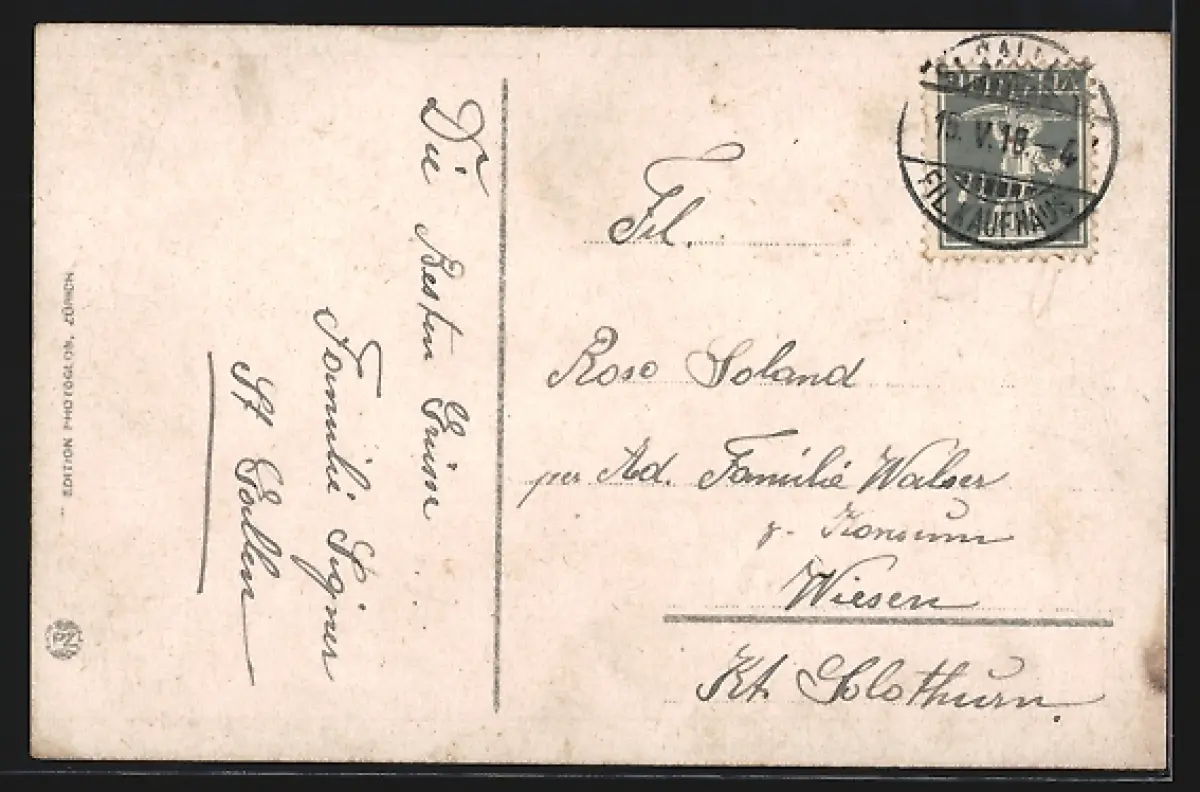 Die Besten Grüsse
Familie Signer
St Gallen
Frl.
Rosa Soland
per Ad. Familie Walser
z. Konsum
Wiesen
Kt. Solothurn.
GALL
V.18.-4
FIL. KAUFHAUS
EDITION PHOTOGLOB, ZÜRICH
PZ